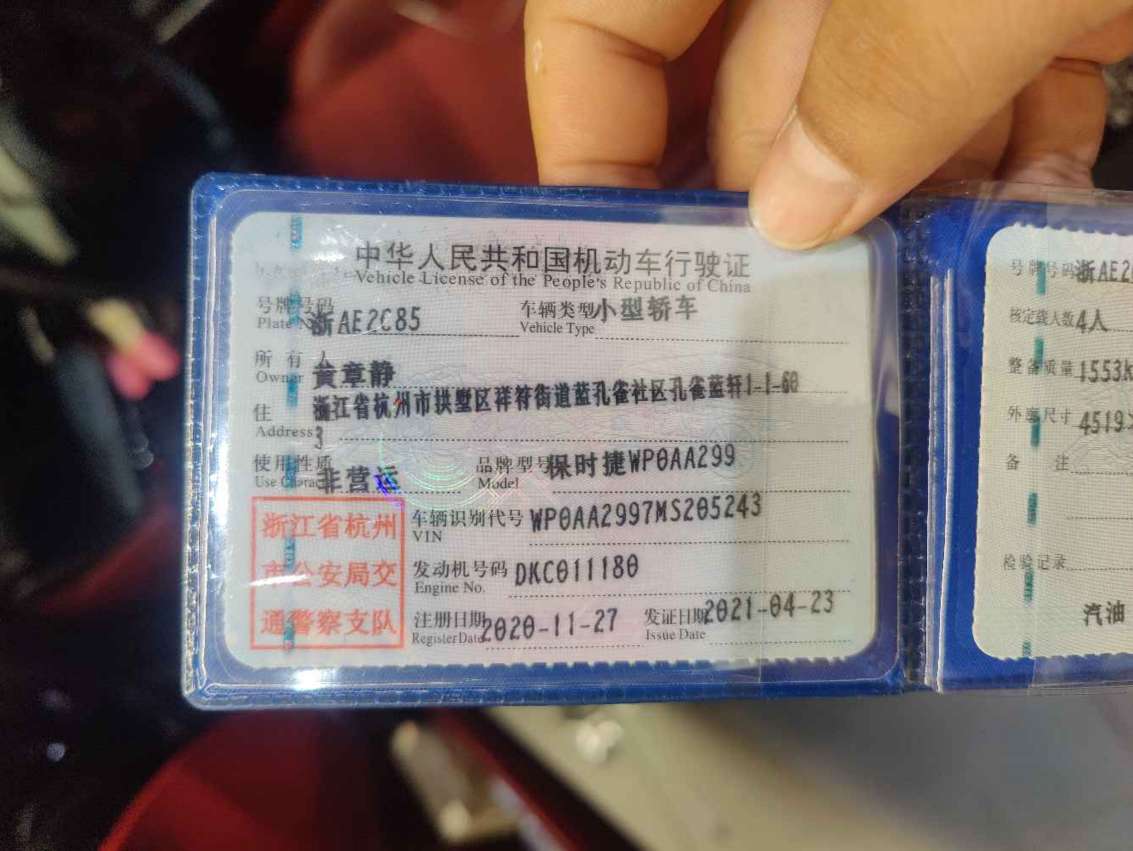 中华人民共和国机动车行驶证
Vehicle License of the People's Republic of China
号牌号码 浙AE2C85 车辆类型 小型轿车
Plate No. Vehicle Type
所有人 黄章静
Owner
住 浙江省杭州市拱墅区祥符街道蓝孔雀社区孔雀蓝轩1-1-60
Address 3
使用性质 非营运 品牌型号 保时捷WP0AA299
Use Character Model
浙江省杭州
市公安局交
通警察支队
车辆识别代号 WP0AA2997MS205243
VIN
发动机号码 DKC011180
Engine No.
注册日期 2020-11-27 发证日期 2021-04-23
Register Date Issue Date
号牌号码 浙AE2
核定载人数 4人
整备质量 1553k
外廓尺寸 4519×
备 注
检验记录
汽油